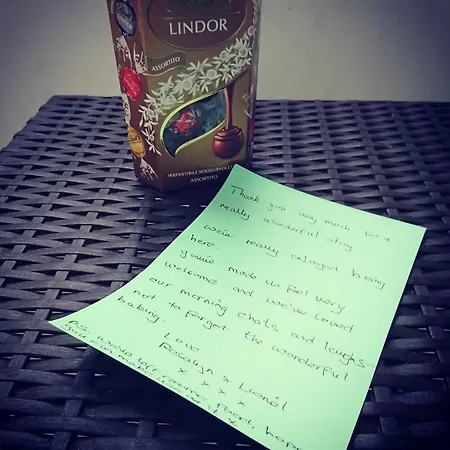 LINDOR
ASSORTITO
IRRESISTIBILE SCIOGLIEVOLEZZA
ASSORTITO
Thank you very much for a
really wonderful stay
we've really enjoyed being
here.
you've made us feel very
welcome and we've loved
our morning chats and laughs...
not to forget the wonderful
baking.
Love
Rosalyn & Lionel
x x x x
P.S. we've left some food, hope